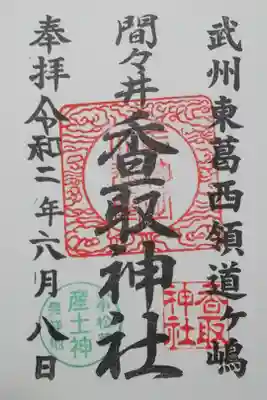 武州東葛西領道ヶ嶋
間々井
香取神社
奉拝 令和二年六月八日
香取
神社
小松
産土神